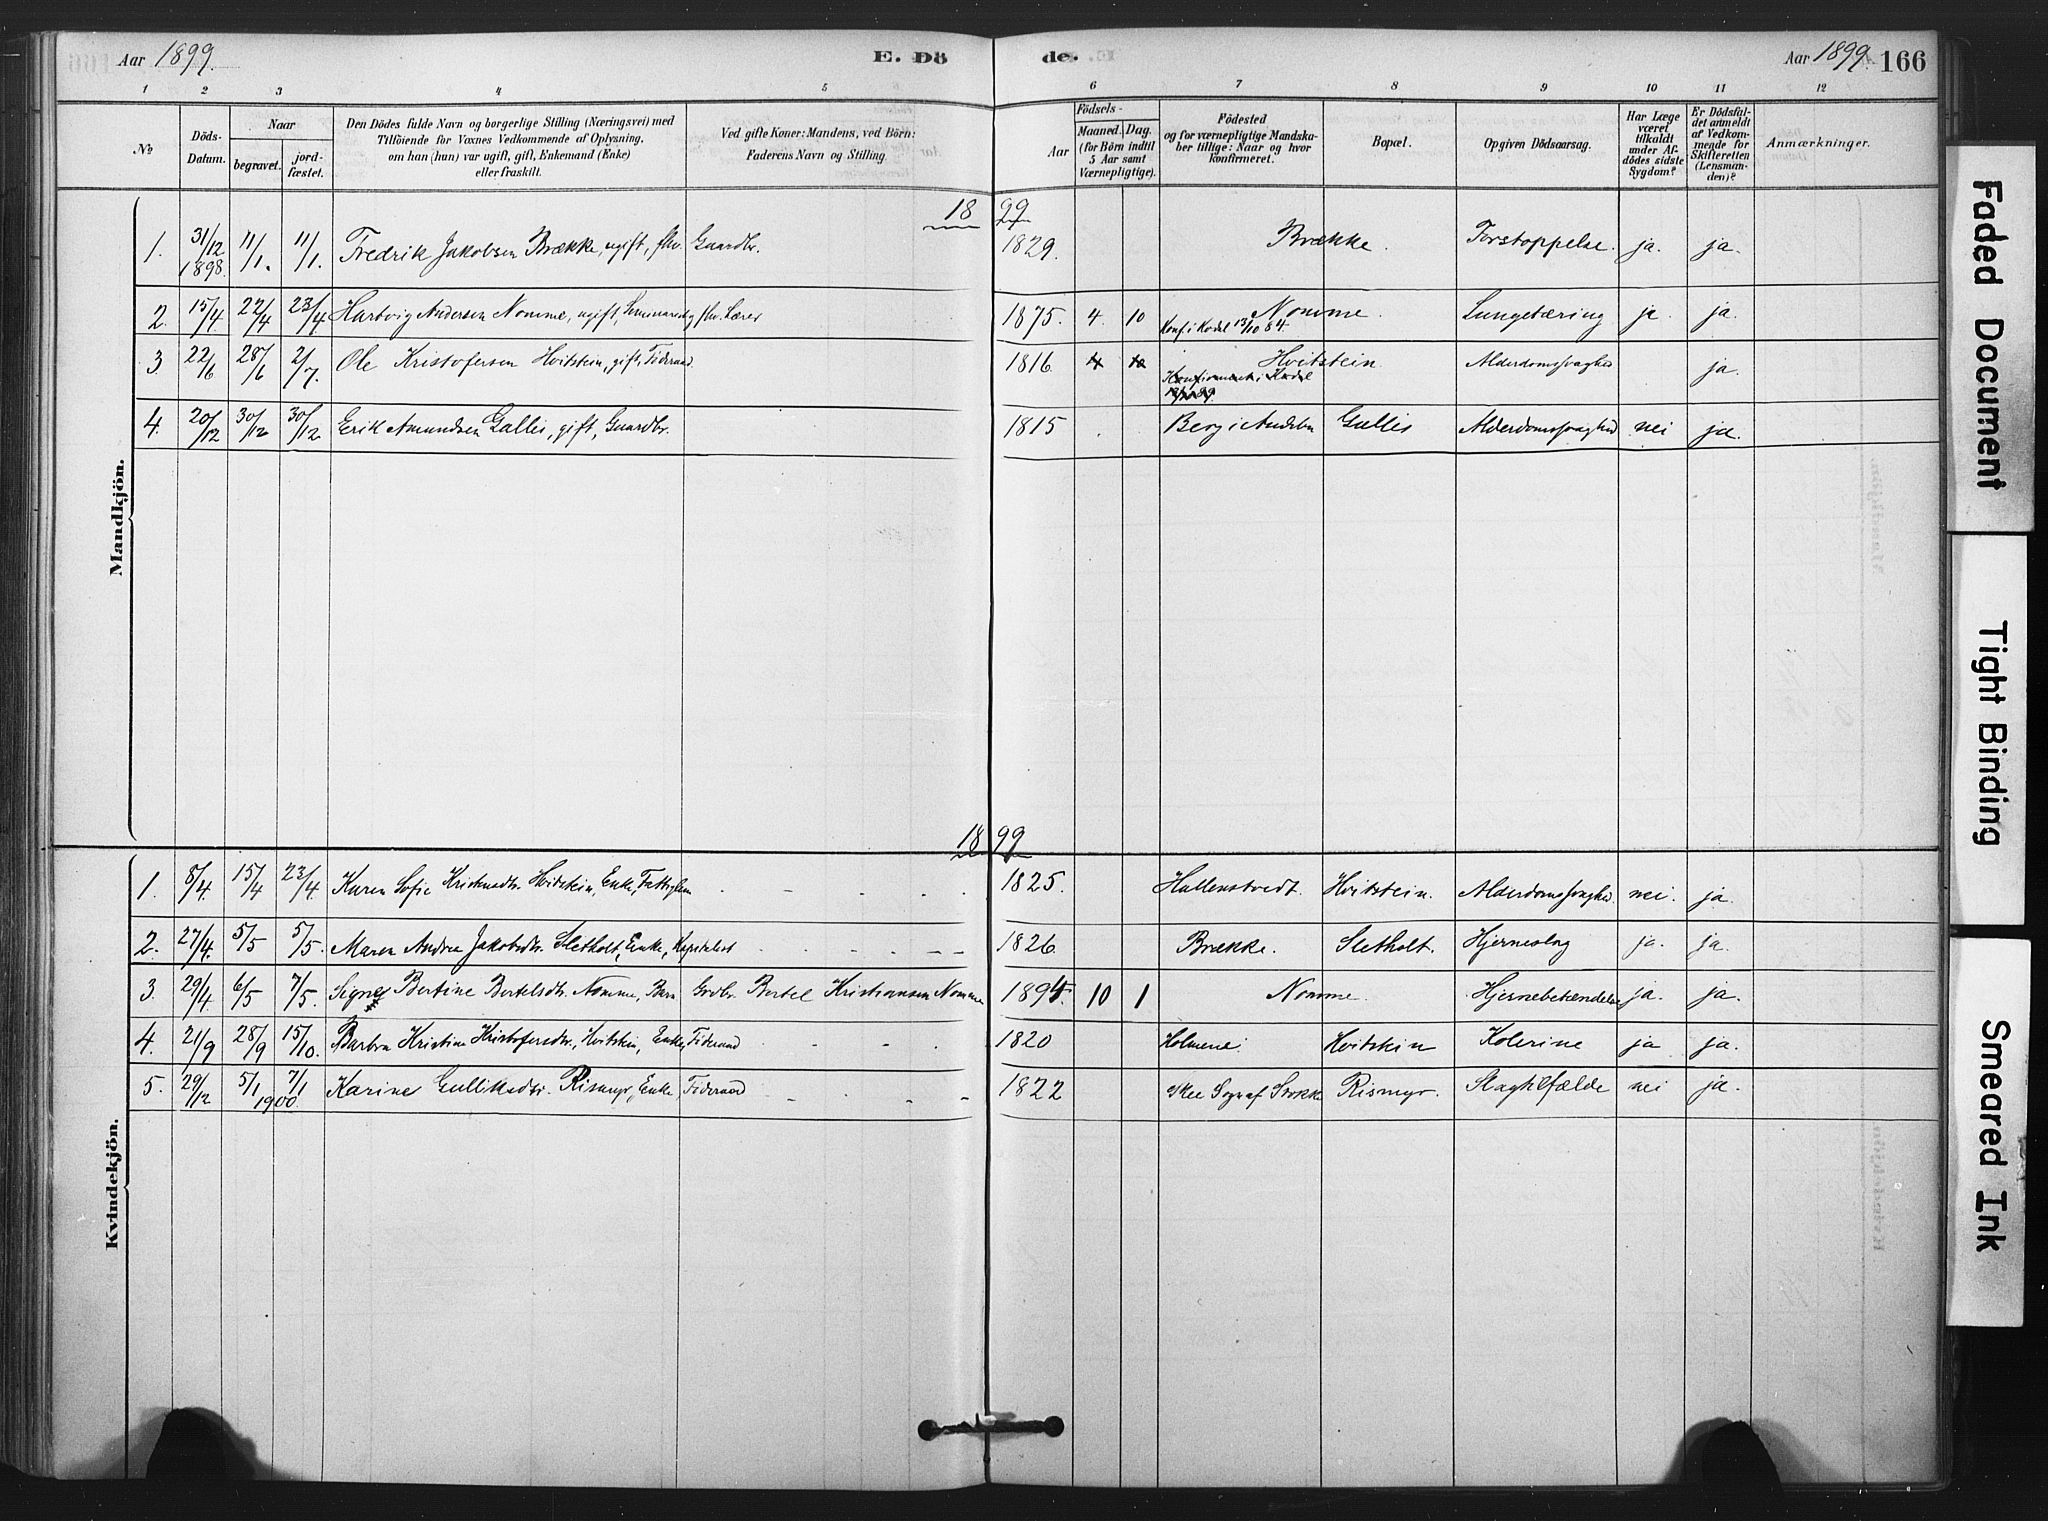 Aar 1899. E. Dö de. Aar 1899. 166
1 2 3 4 5 6 7 8 9 10 11 12
No
Döds-Datum.
Naar
begravet.
jord-fæstet.
Den Dödes fulde Navn og borgerlige Stilling (Næringsvei) med
Tilföiende for Voxnes Vedkommende af Oplysning,
om han (hun) var ugift, gift, Enkemand (Enke)
eller fraskilt.
Ved gifte Koner: Mandens, ved Börn:
Faderens Navn og Stilling
Födsels-
Aar
Maaned. Dag.
(for Börn indtil
5 Aar samt
Værnepligtige).
Födested
og for værnepligtige Mandska-
ber tillige: Naar og hvor
konfirmeret.
Bopæl.
Opgiven Dödsaarsag.
Har Læge
været
tilkaldt
under Af-
dödes sidste
Sygdom?
Er Dödsfal-
det anmeldt
af Vedkom-
mende for
Skifteretten
(Lensman-
den)?
Anmærkninger.
Mandkjön.
18 99
1. 31/12 1898. 11/1. 11/1. Fredrik Jakobsen Brække, ugift, fhv. Gaardbr. 1829. Brække. Forstoppelse. ja. ja.
2. 15/4 22/4 23/4 Hartvig Andersen Nomme, ugift, Seminarist og fhv. Lærer 1875. 4. 10 Nomme. Konf. i Kodal 12/10 84 Lungetæring ja. ja.
3 22/6 28/6 2/7. Ole Kristofersen Hvitstein, gift, Föderaad 1816 4 10 Hvitstein. Konfirmeret i Kodal Alderdomssvaghed ja.
4. 20/12 30/12 30/12. Erik Amundsen Gallis, gift, Gaardbr. 1815 Berg i Andebu Gallis Alderdomssvaghed nei ja.
Kvindekjön.
18 99
1. 8/4. 15/4 23/4. Karen Sofie Kristensdtr. Hvitstein, Enke, Fattiglem 1825. Hallenstvedt. Hvitstein. Alderdomssvaghed. nei. ja.
2. 27/4. 5/5 5/5. Maren Andrea Jakobsdtr. Sletholt, Enke, Kapitalist 1826 Brække. Sletholt. Hjerneslag ja. ja.
3. 29/4. 6/5 7/5. Signe Bertine Bertelsdtr. Nomme, Barn Grdbr. Bertel Kristiansen Nomme 1894 10 1 Nomme. Hjernebetændelse ja. ja.
4. 21/9 28/9 15/10. Barbra Kristine Kristofersdtr., Hvitstein, Enke, Föderaad 1820 Holmene. Hvitstein Kolerine ja ja.
5. 29/12 5/1 1900. 7/1 Karine Gulliksdtr. Rismyr, Enke, Föderaad 1822 Skee Sogn af Stokke Rismyr. Slagtilfælde nei ja.
Faded Document
Tight Binding
Smeared Ink